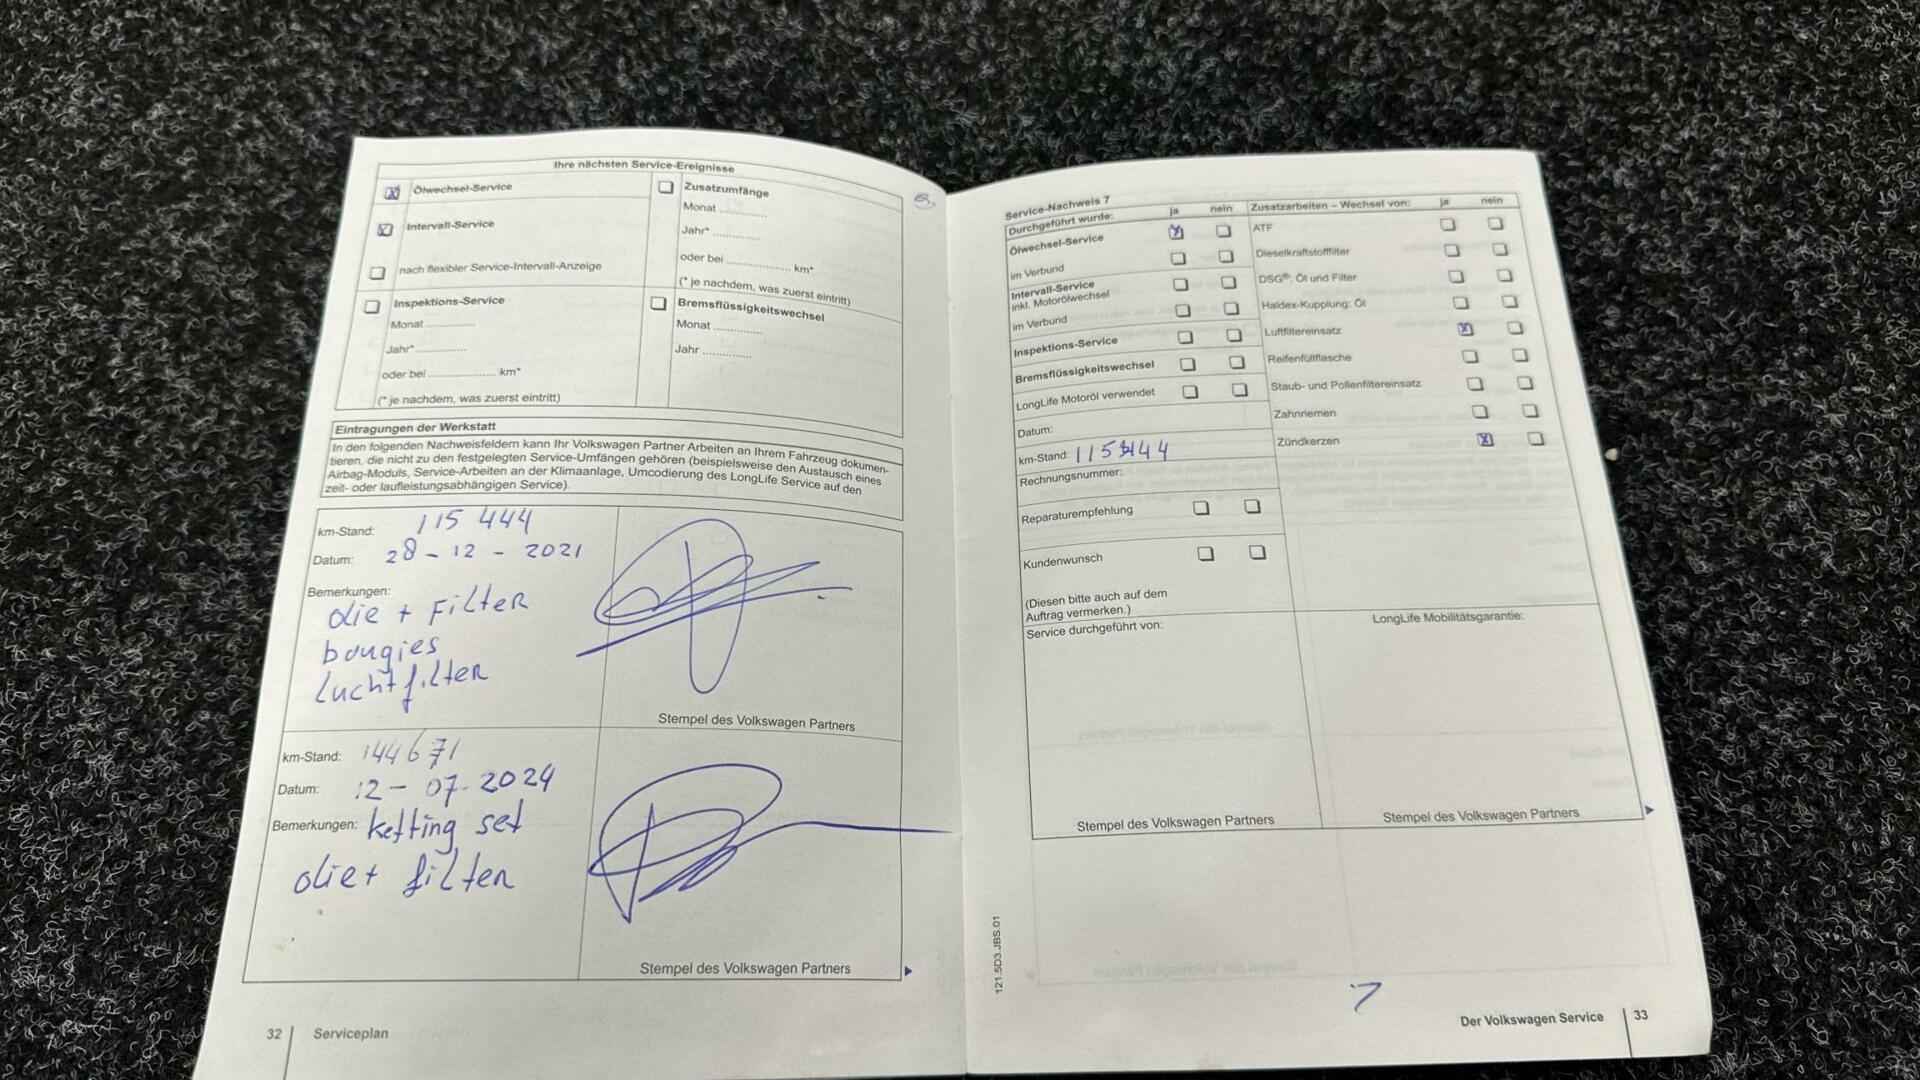 Ihre nächsten Service-Ereignisse
Ölwechsel-Service
Intervall-Service
nach flexibler Service-Intervall-Anzeige
Inspektions-Service
Monat ...............
Jahr* ...............
oder bei .................... km*
(* je nachdem, was zuerst eintritt)
Zusatzumfänge
Monat ...............
Jahr* ...............
oder bei .................... km*
(* je nachdem, was zuerst eintritt)
Bremsflüssigkeitswechsel
Monat ...............
Jahr ...............
Eintragungen der Werkstatt
In den folgenden Nachweisfeldern kann Ihr Volkswagen Partner Arbeiten an Ihrem Fahrzeug dokumen-
tieren, die nicht zu den festgelegten Service-Umfängen gehören (beispielsweise den Austausch eines
Airbag-Moduls, Service-Arbeiten an der Klimaanlage, Umcodierung des LongLife Service auf den
zeit- oder laufleistungsabhängigen Service).
km-Stand: 115 444
Datum: 28-12-2021
Bemerkungen:
olie + Filter
bougies
luchtfilter
Stempel des Volkswagen Partners
km-Stand: 144671
Datum: 12-07-2024
Bemerkungen: ketting set
olie+ filter
Stempel des Volkswagen Partners
32 Serviceplan
Service-Nachweis 7
Durchgeführt wurde: ja nein
Ölwechsel-Service
im Verbund
Intervall-Service
inkl. Motorölwechsel
im Verbund
Inspektions-Service
Bremsflüssigkeitswechsel
LongLife Motoröl verwendet
Datum:
km-Stand: 115444
Rechnungsnummer:
Reparaturempfehlung
Kundenwunsch
(Diesen bitte auch auf dem
Auftrag vermerken.)
Service durchgeführt von:
Stempel des Volkswagen Partners
Zusatzarbeiten – Wechsel von: ja nein
ATF
Dieselkraftstofffilter
DSG®: Öl und Filter
Haldex-Kupplung: Öl
Luftfiltereinsatz
Reifenfüllflasche
Staub- und Pollenfiltereinsatz
Zahnriemen
Zündkerzen
LongLife Mobilitätsgarantie:
Stempel des Volkswagen Partners
121.5D3.JBS.01
7
Der Volkswagen Service 33